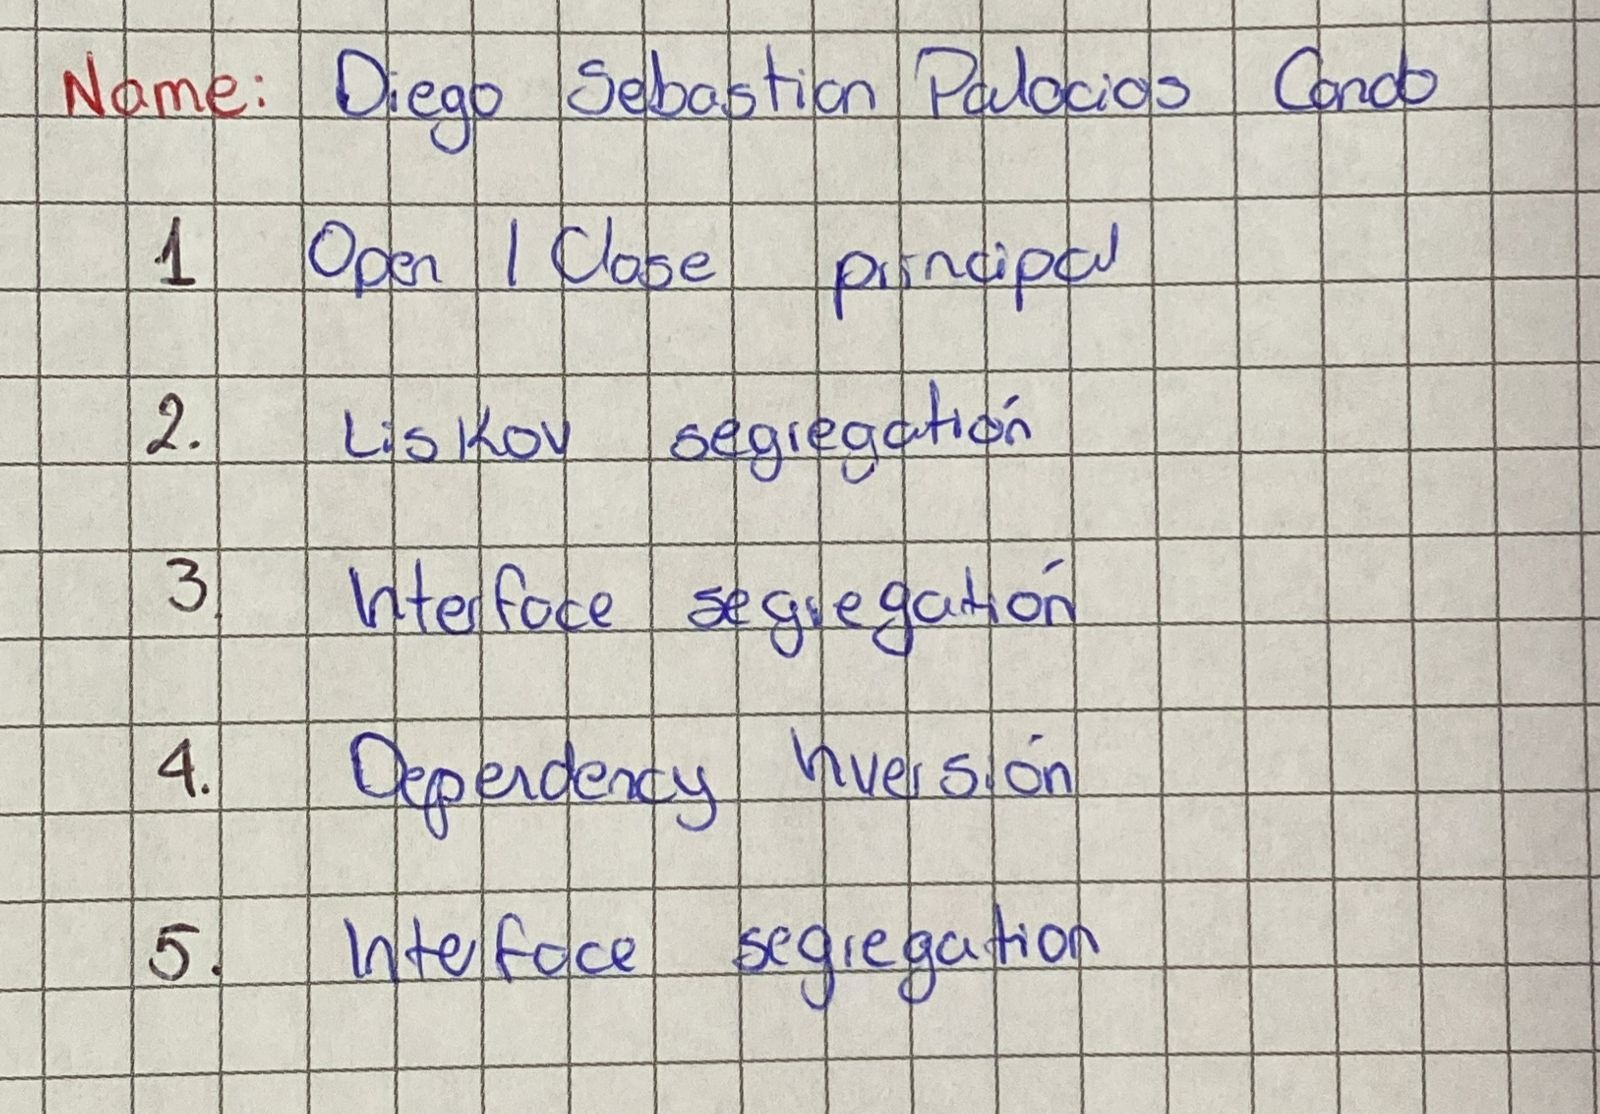 Name: Diego Sebastian Palacios Condo
1 Open / Close principal
2. Liskov segregatión
3 Interface segregatión
4. Dependency Inversión
5. Interface segregation